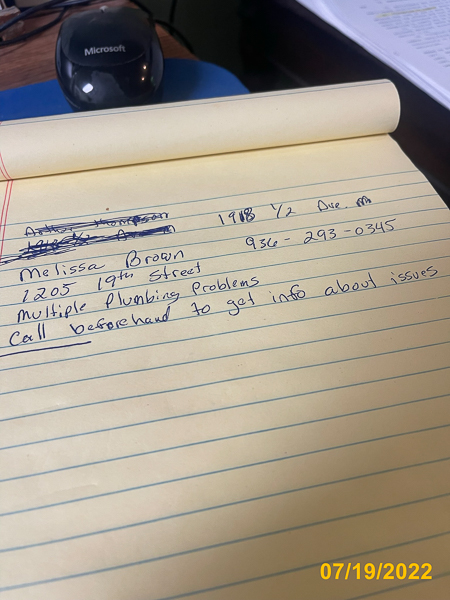 Microsoft
Arthur Thompson 1918 1/2 Ave. M
Melissa Brown 936-293-0345
1205 19th Street
Multiple Plumbing Problems
Call beforehand to get info about issues
07/19/2022